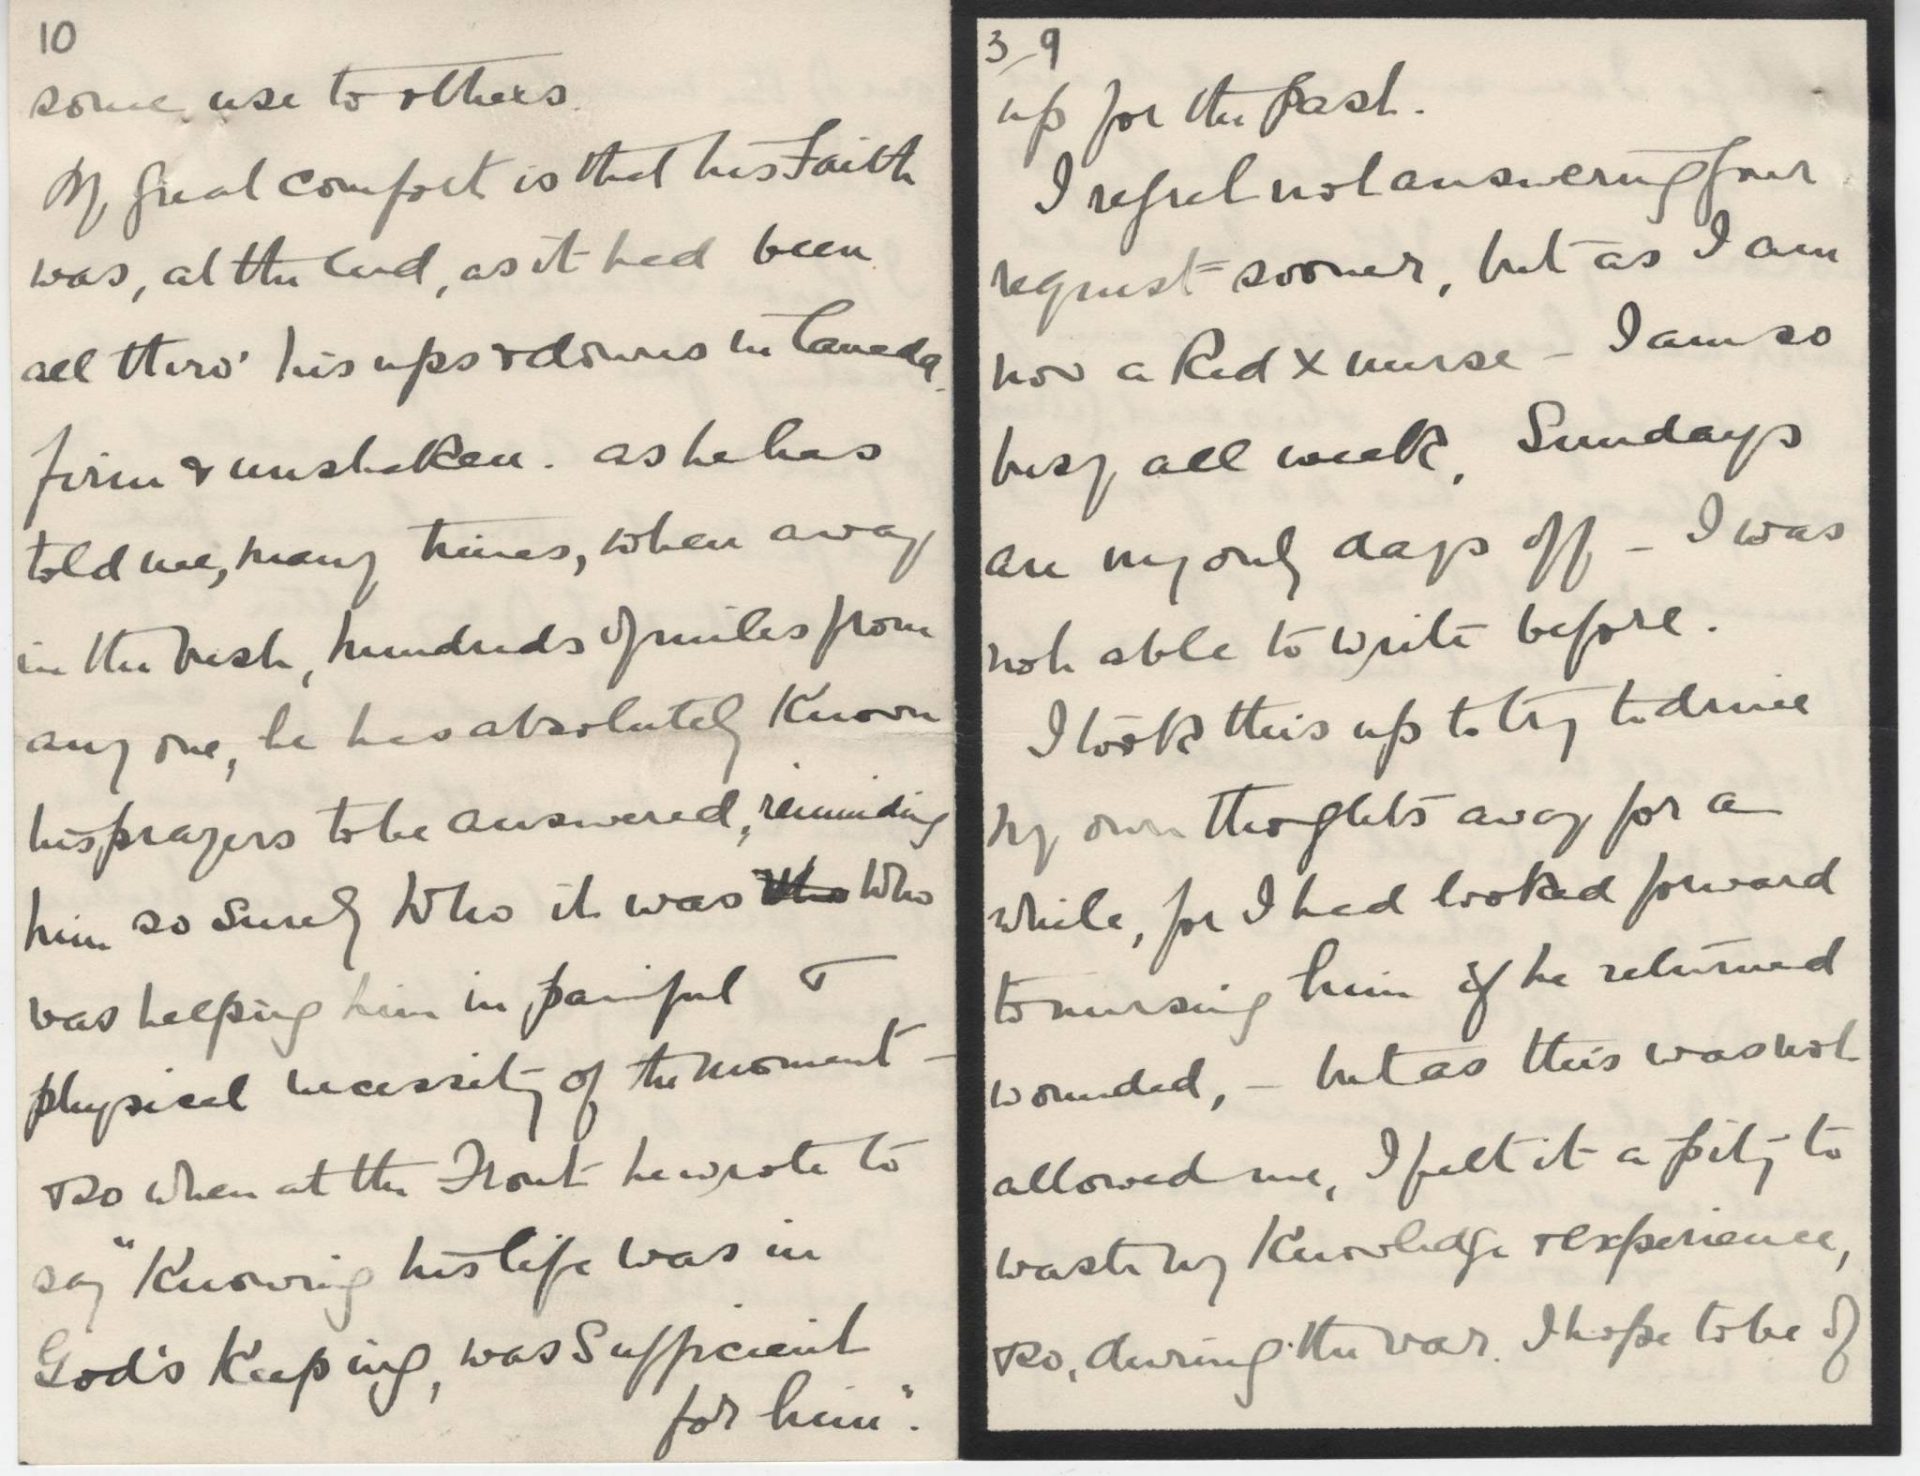 10
some use to others.
My great comfort is that his Faith
was, at the end, as it had been
all thro' his ups & downs in Canada,
firm & unshaken. as he has
told me, many times, when away
in the bush, hundreds of miles from
any one, he has absolutely Known
his prayers to be answered, reminding
him so surely Who it was Who
was helping him in painful &
physical necessity of the moment -
& so when at the Front he wrote to
say "Knowing his life was in
God's Keeping, was Sufficient
for him".
3_9
up for the past.
I regret not answering your
request sooner, but as I am
now a Red X nurse - I am so
busy all week, Sundays
are my only days off - I was
not able to write before.
I took this up to try to drive
my own thoughts away for a
while, for I had looked forward
to nursing him if he returned
wounded, - but as this was not
allowed me, I felt it a pity to
waste my Knowledge & experience,
& so, during the war. I hope to be of